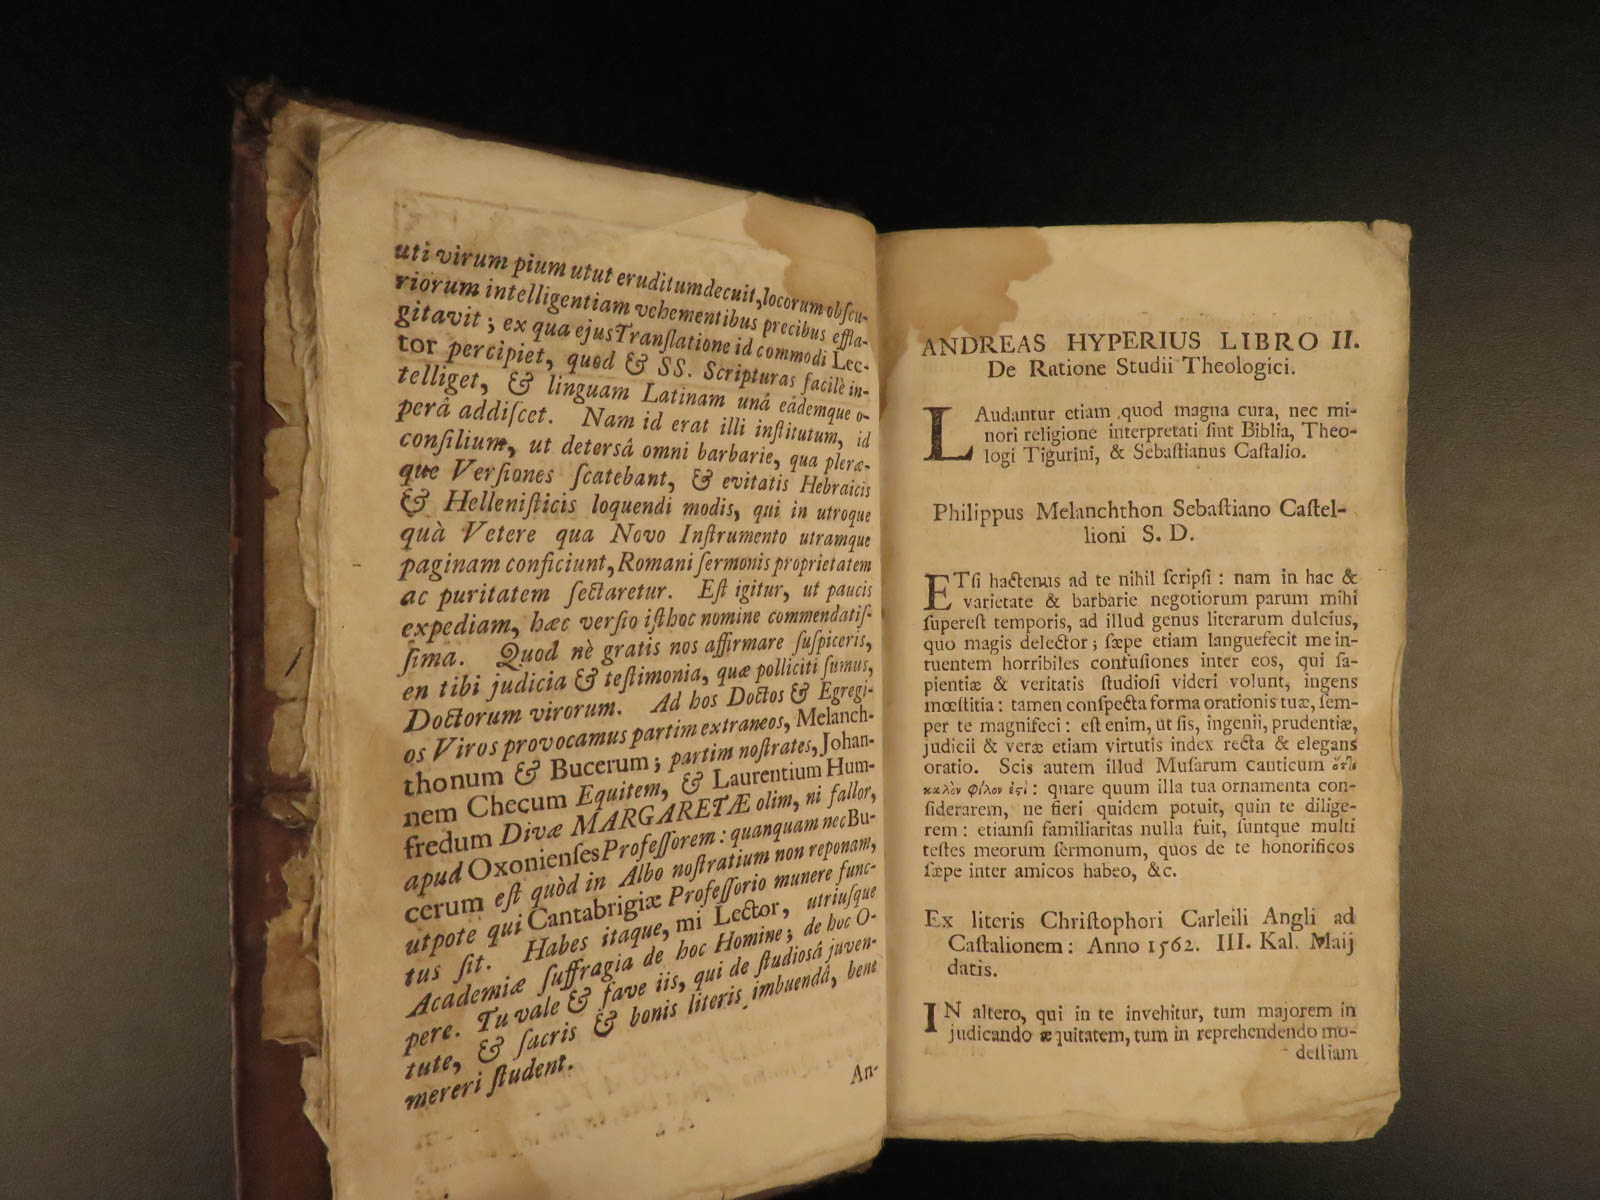 uti virum pium utut eruditum decuit, locorum obſcu-
riorum intelligentiam vehementibus precibus effla-
gitavit; ex qua ejus Tranſlatione id commodi Lec-
tor percipiet, quod & SS. Scripturas facilè in-
telliget, & linguam Latinam unâ eâdemque o-
perâ addiſcet. Nam id erat illi inſtitutum, id
conſilium, ut deterſâ omni barbarie, qua pleræ-
que Verſiones ſcatebant, & evitatis Hebraicis
& Helleniſticis loquendi modis, qui in utroque
quà Vetere qua Novo Inſtrumento utramque
paginam conficiunt, Romani ſermonis proprietatem
ac puritatem ſectaretur. Eſt igitur, ut paucis
expediam, hæc verſio iſthoc nomine commendatiſ-
ſima. Quod nè gratis nos affirmare ſuſpiceris,
en tibi judicia & teſtimonia, quæ polliciti ſumus,
Doctorum virorum. Ad hos Doctos & Egregi-
os Viros provocamus partim extraneos, Melanch-
thonum & Bucerum; partim noſtrates, Johan-
nem Checum Equitem, & Laurentium Hum-
fredum Divæ MARGARETÆ olim, ni fallor,
apud Oxonienſes Profeſſorem: quanquam nec Bu-
cerum eſt quòd in Albo noſtratium non reponam,
utpote qui Cantabrigiæ Profeſſorio munere func-
tus ſit. Habes itaque, mi Lector, utriuſque
Academiæ ſuffragia de hoc Homine; de hoc O-
pere. Tu vale & fave iis, qui de ſtudiosâ juven-
tute, & ſacris & bonis literis imbuendâ, bene
mereri ſtudent.
An-
ANDREAS HYPERIUS LIBRO II.
De Ratione Studii Theologici.
LAudantur etiam quod magna cura, nec mi-
nori religione interpretati ſint Biblia, Theo-
logi Tigurini, & Sebaſtianus Caſtalio.
Philippus Melanchthon Sebaſtiano Caſtel-
lioni S. D.
ETſi hactenus ad te nihil ſcripſi: nam in hac &
varietate & barbarie negotiorum parum mihi
ſupereſt temporis, ad illud genus literarum dulcius,
quo magis delector; ſæpe etiam languefecit me in-
tuentem horribiles confuſiones inter eos, qui ſa-
pientiæ & veritatis ſtudioſi videri volunt, ingens
mœſtitia: tamen conſpecta forma orationis tuæ, ſem-
per te magnifeci: eſt enim, ut ſis, ingenii, prudentiæ,
judicii & veræ etiam virtutis index recta & elegans
oratio. Scis autem illud Muſarum canticum ὅτι
καλὸν φίλον ἐςὶ: quare quum illa tua ornamenta con-
ſiderarem, ne fieri quidem potuit, quin te dilige-
rem: etiamſi familiaritas nulla fuit, ſuntque multi
teſtes meorum ſermonum, quos de te honorificos
ſæpe inter amicos habeo, &c.
Ex literis Chriſtophori Carleili Angli ad
Caſtalionem: Anno 1562. III. Kal. Maij
datis.
IN altero, qui in te invehitur, tum majorem in
judicando æquitatem, tum in reprehendendo mo-
deſtiam